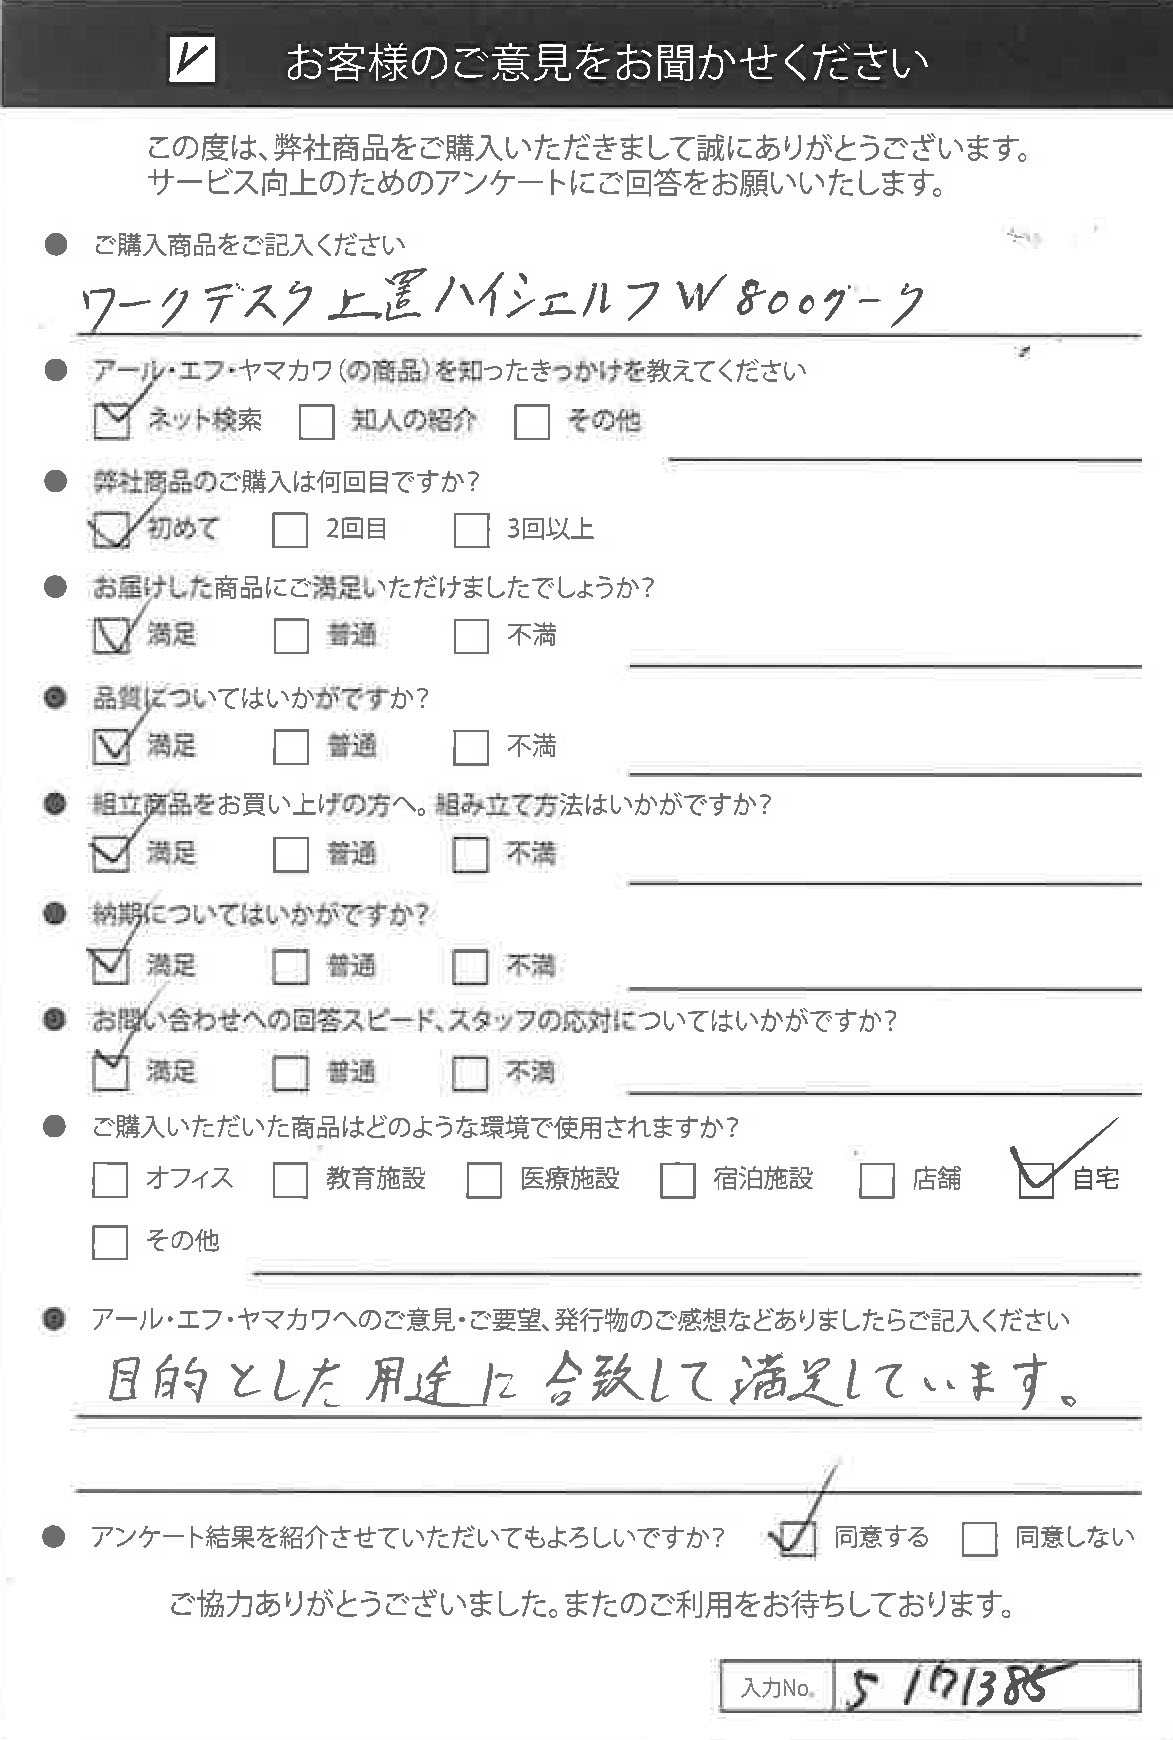 お客様のご意見をお聞かせください
この度は、弊社商品をご購入いただきまして誠にありがとうございます。
サービス向上のためのアンケートにご回答をお願いいたします。
● ご購入商品をご記入ください
ワークデスク上置ハイシェルフW800ダーク
● アール・エフ・ヤマカワ(の商品)を知ったきっかけを教えてください
☑ ネット検索 □ 知人の紹介 □ その他
● 弊社商品のご購入は何回目ですか?
☑ 初めて □ 2回目 □ 3回以上
● お届けした商品にご満足いただけましたでしょうか?
☑ 満足 □ 普通 □ 不満
● 品質についてはいかがですか?
☑ 満足 □ 普通 □ 不満
● 組立商品をお買い上げの方へ。組み立て方法はいかがですか?
☑ 満足 □ 普通 □ 不満
● 納期についてはいかがですか?
☑ 満足 □ 普通 □ 不満
● お問い合わせへの回答スピード、スタッフの応対についてはいかがですか?
☑ 満足 □ 普通 □ 不満
● ご購入いただいた商品はどのような環境で使用されますか?
□ オフィス □ 教育施設 □ 医療施設 □ 宿泊施設 □ 店舗 ☑ 自宅
□ その他
● アール・エフ・ヤマカワへのご意見・ご要望、発行物のご感想などありましたらご記入ください
目的とした用途に合致して満足しています。
● アンケート結果を紹介させていただいてもよろしいですか? ☑ 同意する □ 同意しない
ご協力ありがとうございました。またのご利用をお待ちしております。
入力No.